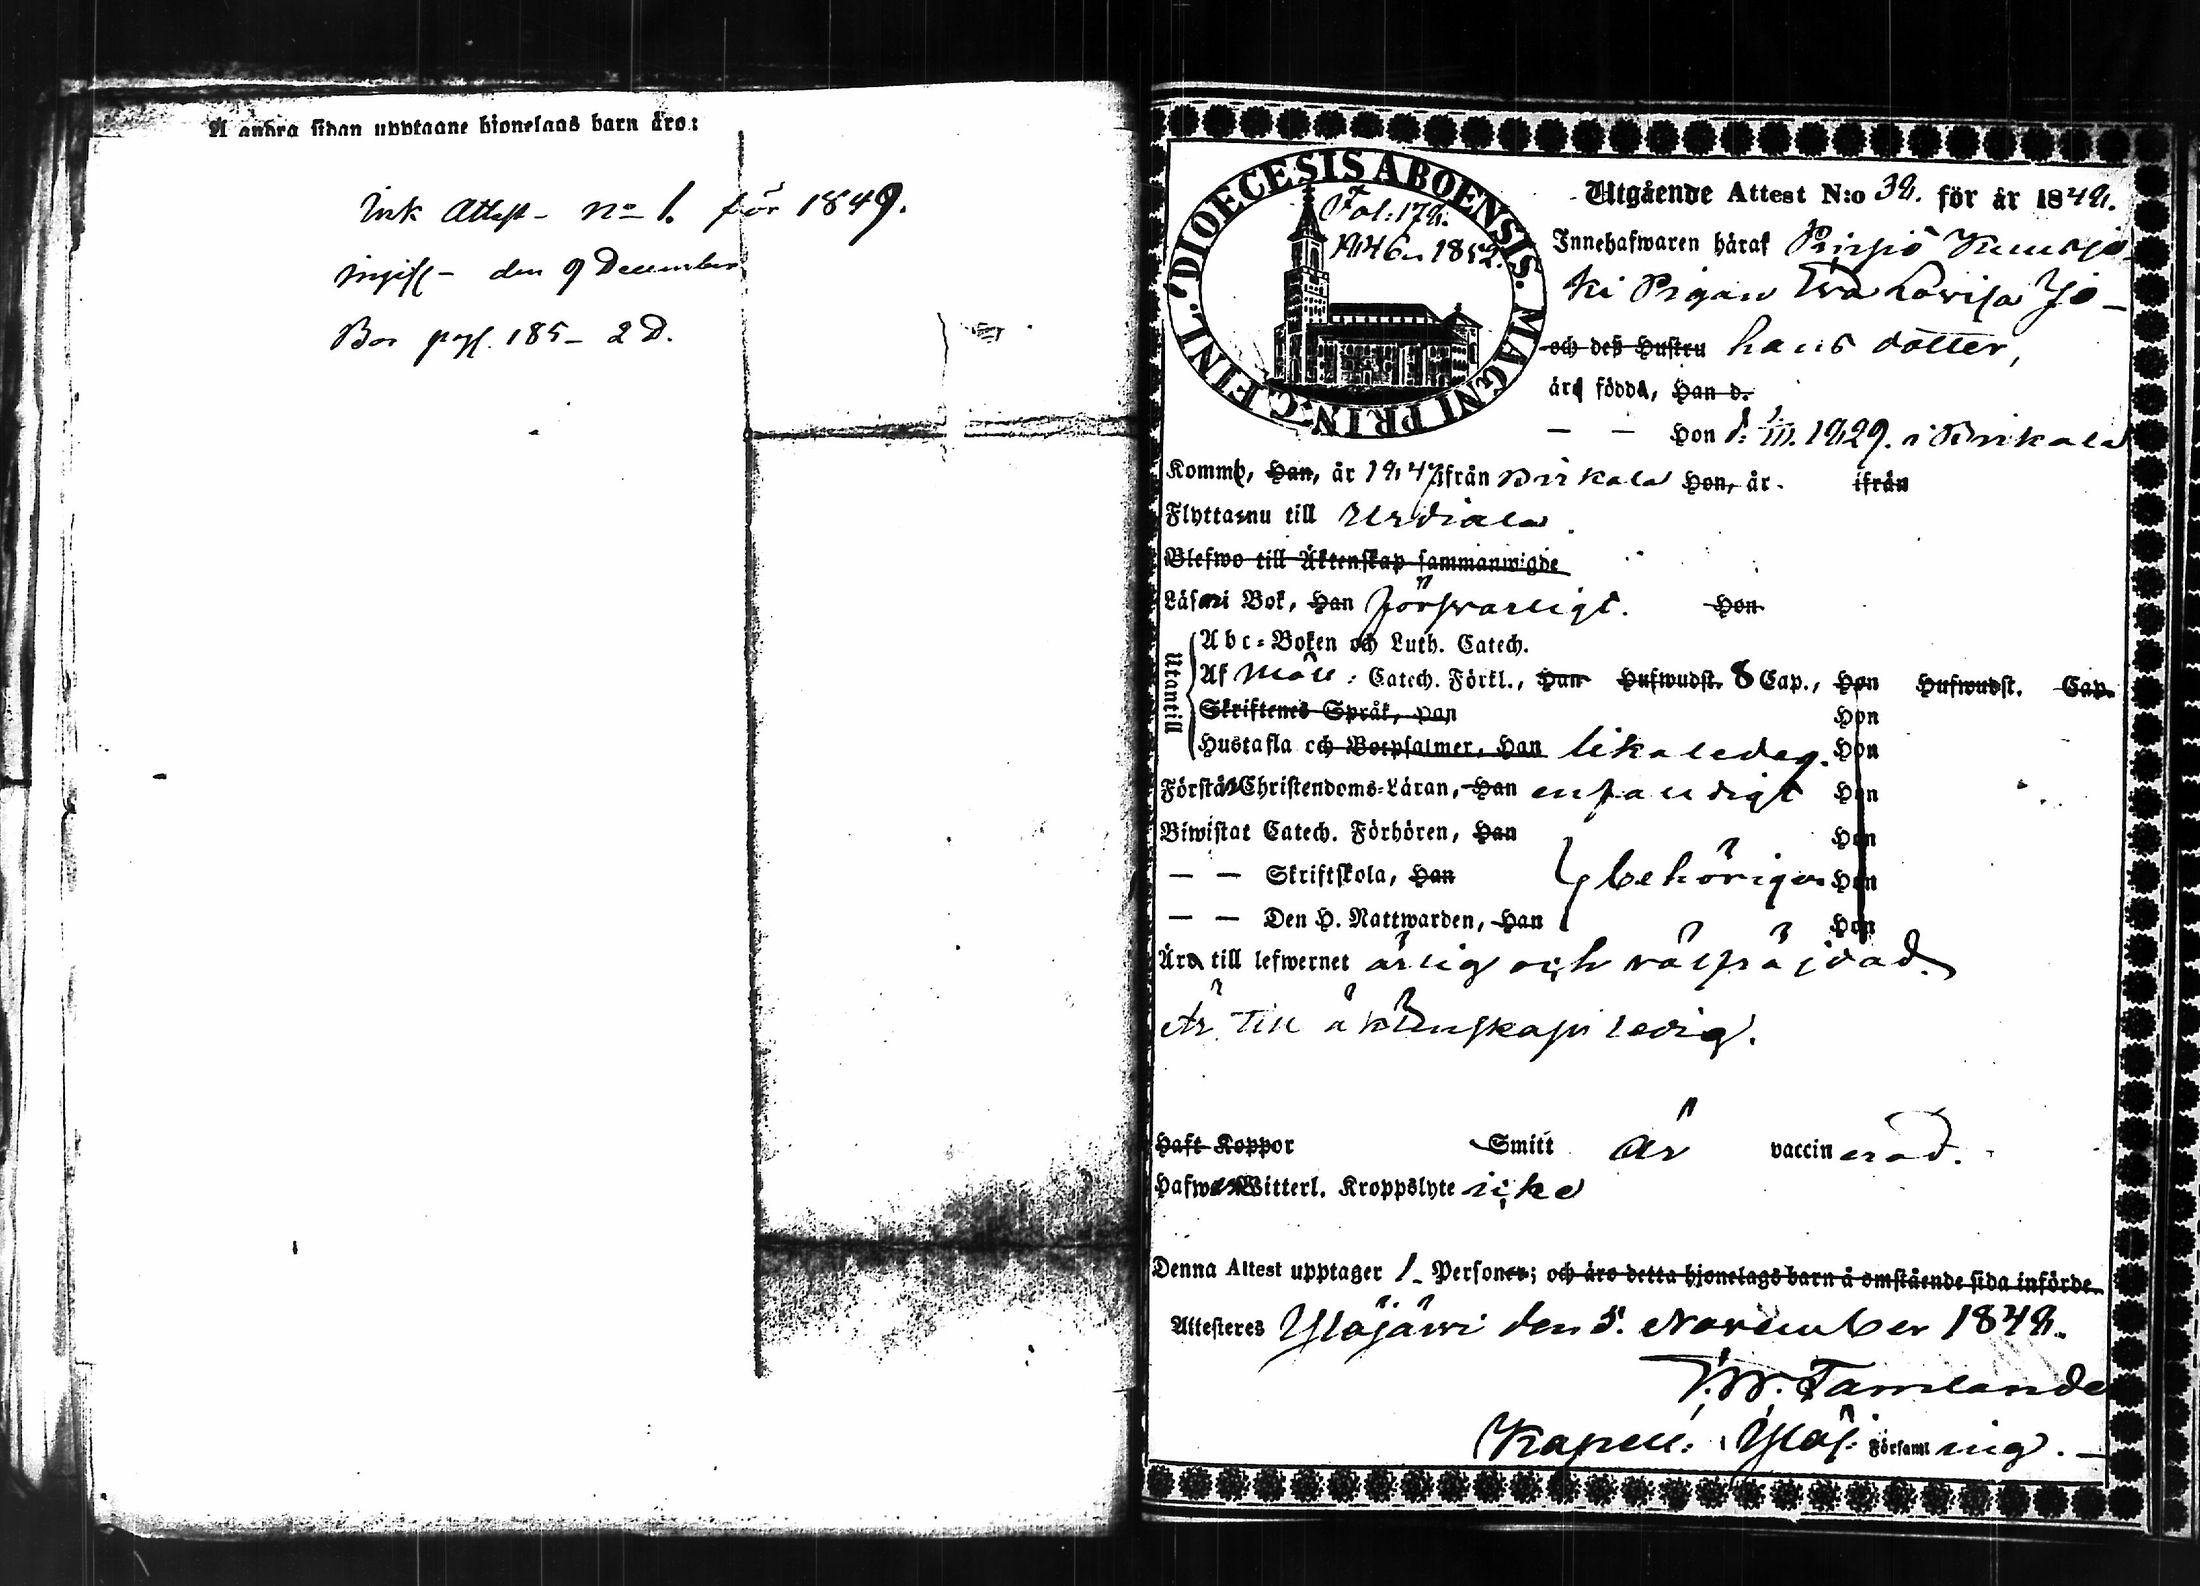 Å andra sidan upptagne hjonelags barn äro:
Ink Attest - No 1. för 1849.
den 9 December
Bor 185 - 2 D.
DIOECESIS ABOENSIS. MAGNI PRINC. FINL.
Fol: 178.
1846 - 1852.
Utgående Attest N:o 38. för år 1848.
Innehafwaren häraf
Pigan Ewa Lowisa Jo-
och deß Hustru hans dotter,
äro födda, Han d.
— — Hon d. 1/III. 1829. i Birkala
Kommo, Han, år 184 ifrån Birkala Hon, år ifrån
Flytta nu till Urdiala.
Blefwo till Äktenskap sammanwigde
Läsa i Bok, Han förswarligt. Hon
Utantill
Abc-Boken och Luth. Catech.
Af Möll: Catech. Förkl., Han Hufwudst. 8 Cap., Hon Hufwudst. Cap.
Skriftenes Språk, Han Hon
Hustafla och Botpsalmer, Han likaledes. Hon
Förstå Christendoms-Läran, Han enfaldigt Hon
Biwistat Catech. Förhören, Han Hon
— — Skriftskola, Han behörigen Hon
— — Den H. Nattwarden, Han Hon
Äro till lefwernet ärlig och välfräjdad.
Är till äktenskap ledig.
Haft Koppor Smitt är vaccinerad.
Hafwa Witterl. Kroppslyte icke
Denna Attest upptager 1 - Personer; och äro detta hjonelags barn å omstående sida införde.
Attesteres Ylöjärwi den 5. November 1848.
Tamlande
Kapell: i Ylöj: Församlning. —